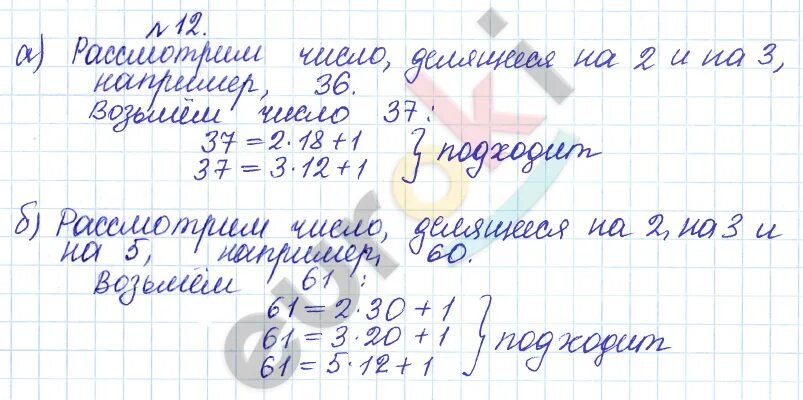 №12.
а) Рассмотрим число, делящееся на 2 и на 3,
например, 36.
Возьмём число 37:
37 = 2·18+1
37 = 3·12+1 } подходит
б) Рассмотрим число, делящееся на 2, на 3 и
на 5, например, 60.
Возьмём 61:
61 = 2·30 + 1
61 = 3·20 + 1 } подходит
61 = 5·12 + 1
euroki